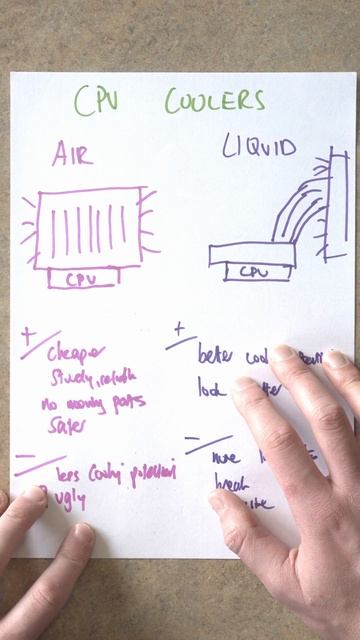 CPU COOLERS
AIR
LIQUID
CPU
CPU
+
cheaper
Sturdy,
no moving parts
Safer
-
less cooling potential
ugly
+
better
look
-
more
break